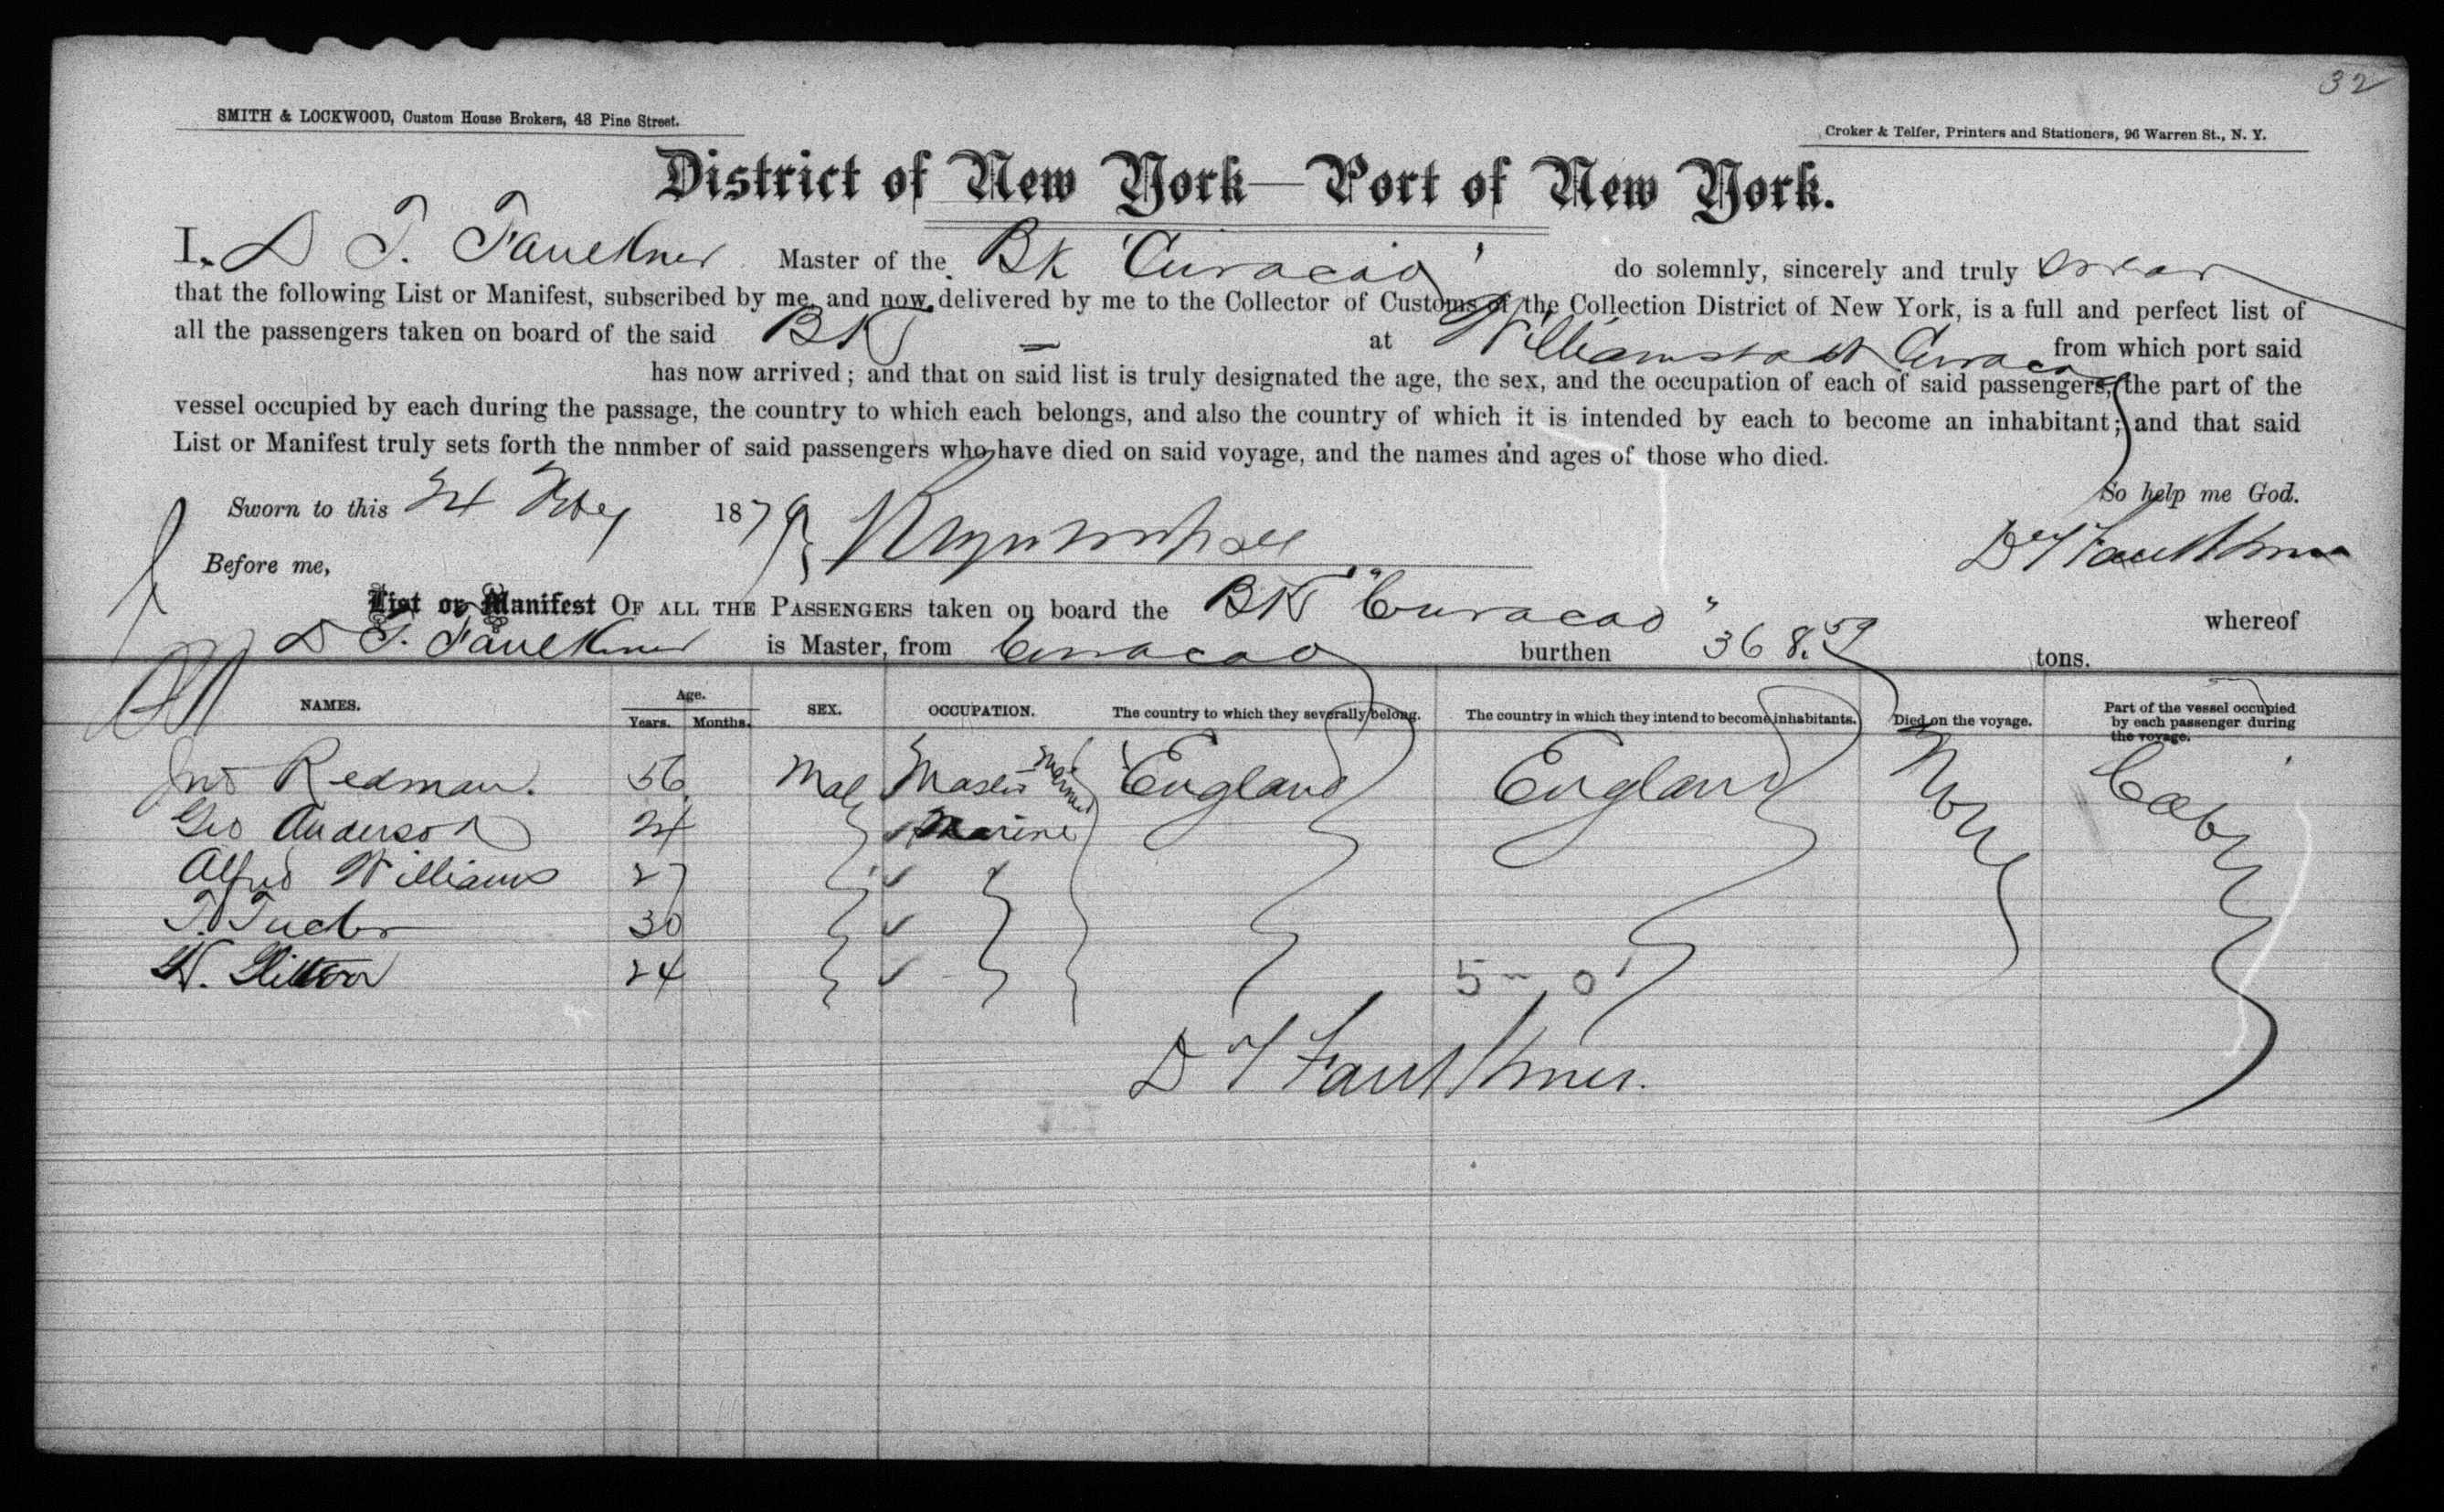 32
SMITH & LOCKWOOD, Custom House Brokers, 48 Pine Street.
Croker & Telfer, Printers and Stationers, 96 Warren St., N. Y.
District of New York—Port of New York.
I, D T. Faulkner Master of the Bk 'Curacao' do solemnly, sincerely and truly swear
that the following List or Manifest, subscribed by me, and now delivered by me to the Collector of Customs of the Collection District of New York, is a full and perfect list of
all the passengers taken on board of the said BK at Williamstadt Curacao from which port said
has now arrived; and that on said list is truly designated the age, the sex, and the occupation of each of said passengers, the part of the
vessel occupied by each during the passage, the country to which each belongs, and also the country of which it is intended by each to become an inhabitant; and that said
List or Manifest truly sets forth the nnmber of said passengers who have died on said voyage, and the names and ages of those who died.
Sworn to this 24 1879 So help me God.
Before me, D T Faulkner
List or Manifest OF ALL THE PASSENGERS taken on board the BK "Curacao" whereof
D T. Faulkner is Master, from Curacao burthen 368.59 tons.
NAMES. Age. Years. Months. SEX. OCCUPATION. The country to which they severally belong. The country in which they intend to become inhabitants. Died on the voyage. Part of the vessel occupied by each passenger during the voyage.
Jno Redman. 56 Male Master England England None Cabin
Geo Anderson 24 Marine
Alfred Williams 27
T. 30
W. 24 5 - 0
D T Faulkner.